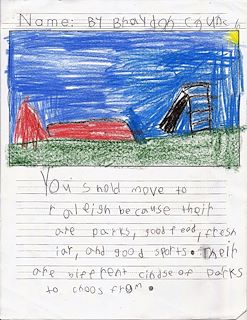 Name: By Brayden
You shold move to
raleigh because their
are parks, good food, fresh
iar, and good sports. Their
are different cindse of parks
to choos from.